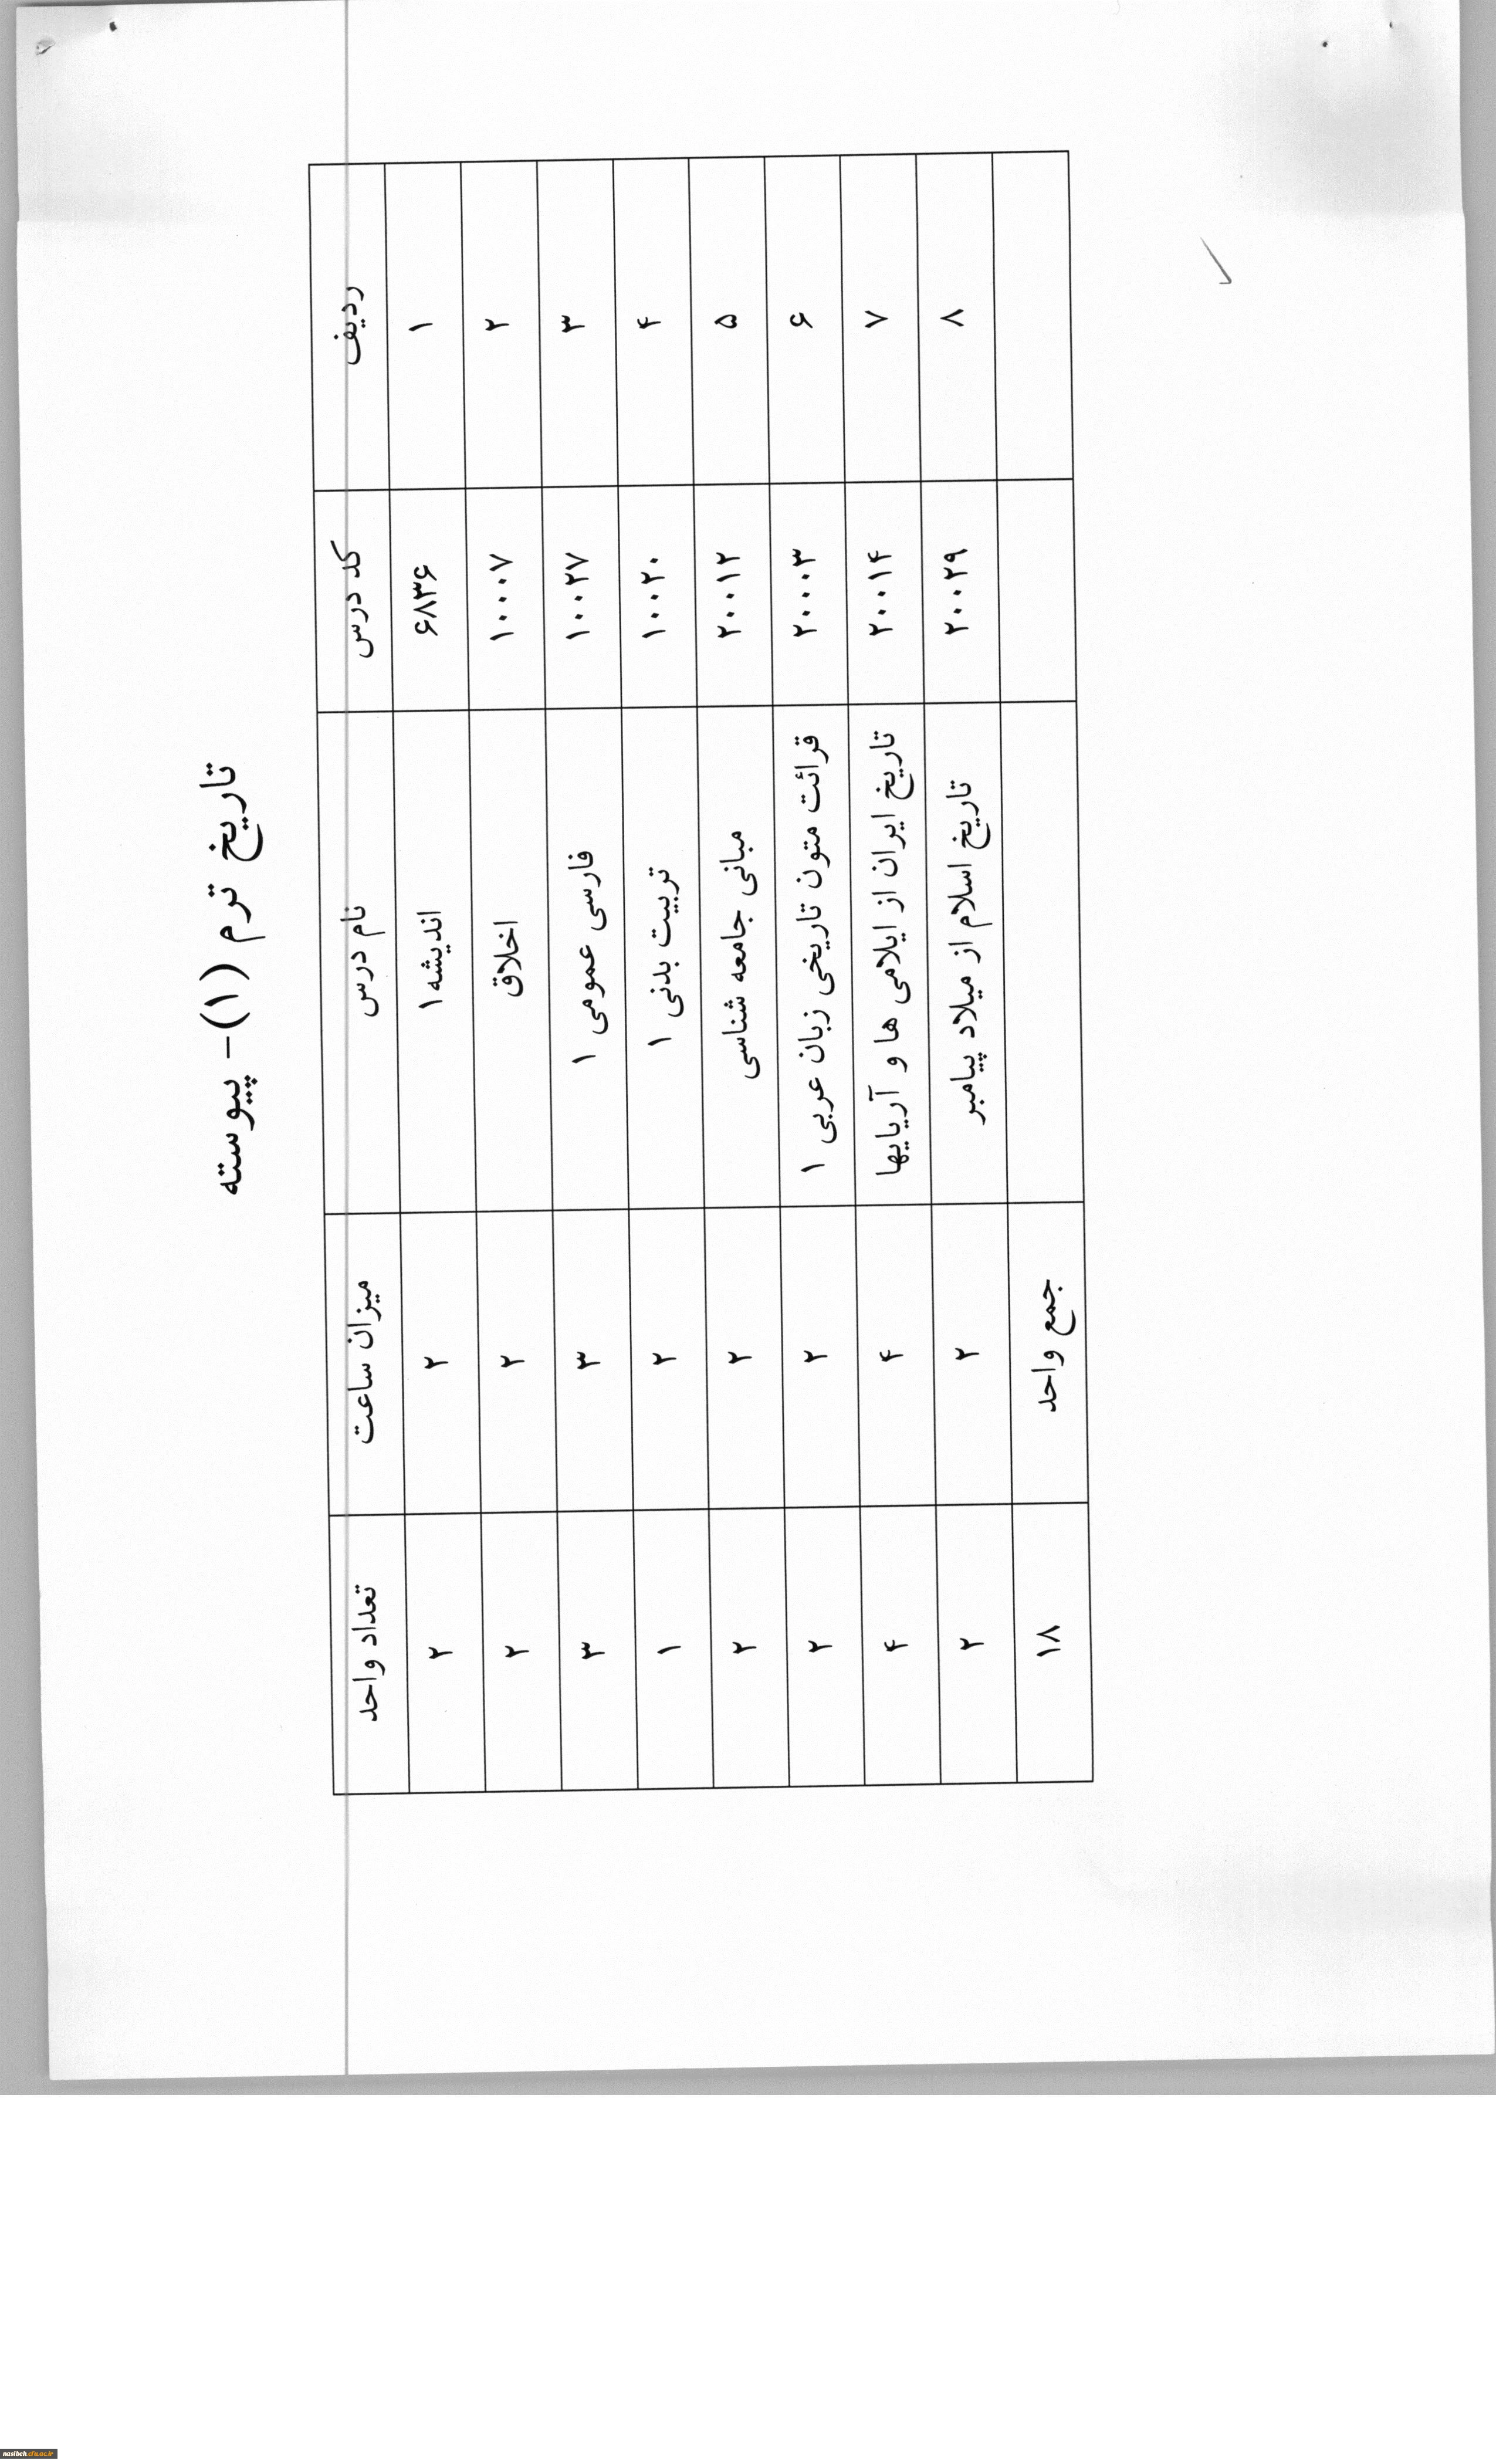 تاریخ ترم (۱)- پیوسته
ردیف کد درس نام درس میزان ساعت تعداد واحد
۱ ۶۸۳۶ اندیشه ۱ ۲ ۲
۲ ۱۰۰۰۷ اخلاق ۲ ۲
۳ ۱۰۰۲۷ فارسی عمومی ۱ ۳ ۳
۴ ۱۰۰۲۰ تربیت بدنی ۱ ۲ ۱
۵ ۲۰۰۱۲ مبانی جامعه شناسی ۲ ۲
۶ ۲۰۰۰۳ قرائت متون تاریخی زبان عربی ۱ ۲ ۲
۷ ۲۰۰۱۴ تاریخ ایران از ایلامی ها و آریایها ۴ ۴
۸ ۲۰۰۲۹ تاریخ اسلام از میلاد پیامبر ۲ ۲
جمع واحد ۱۸
nasibeh.cfu.ac.ir